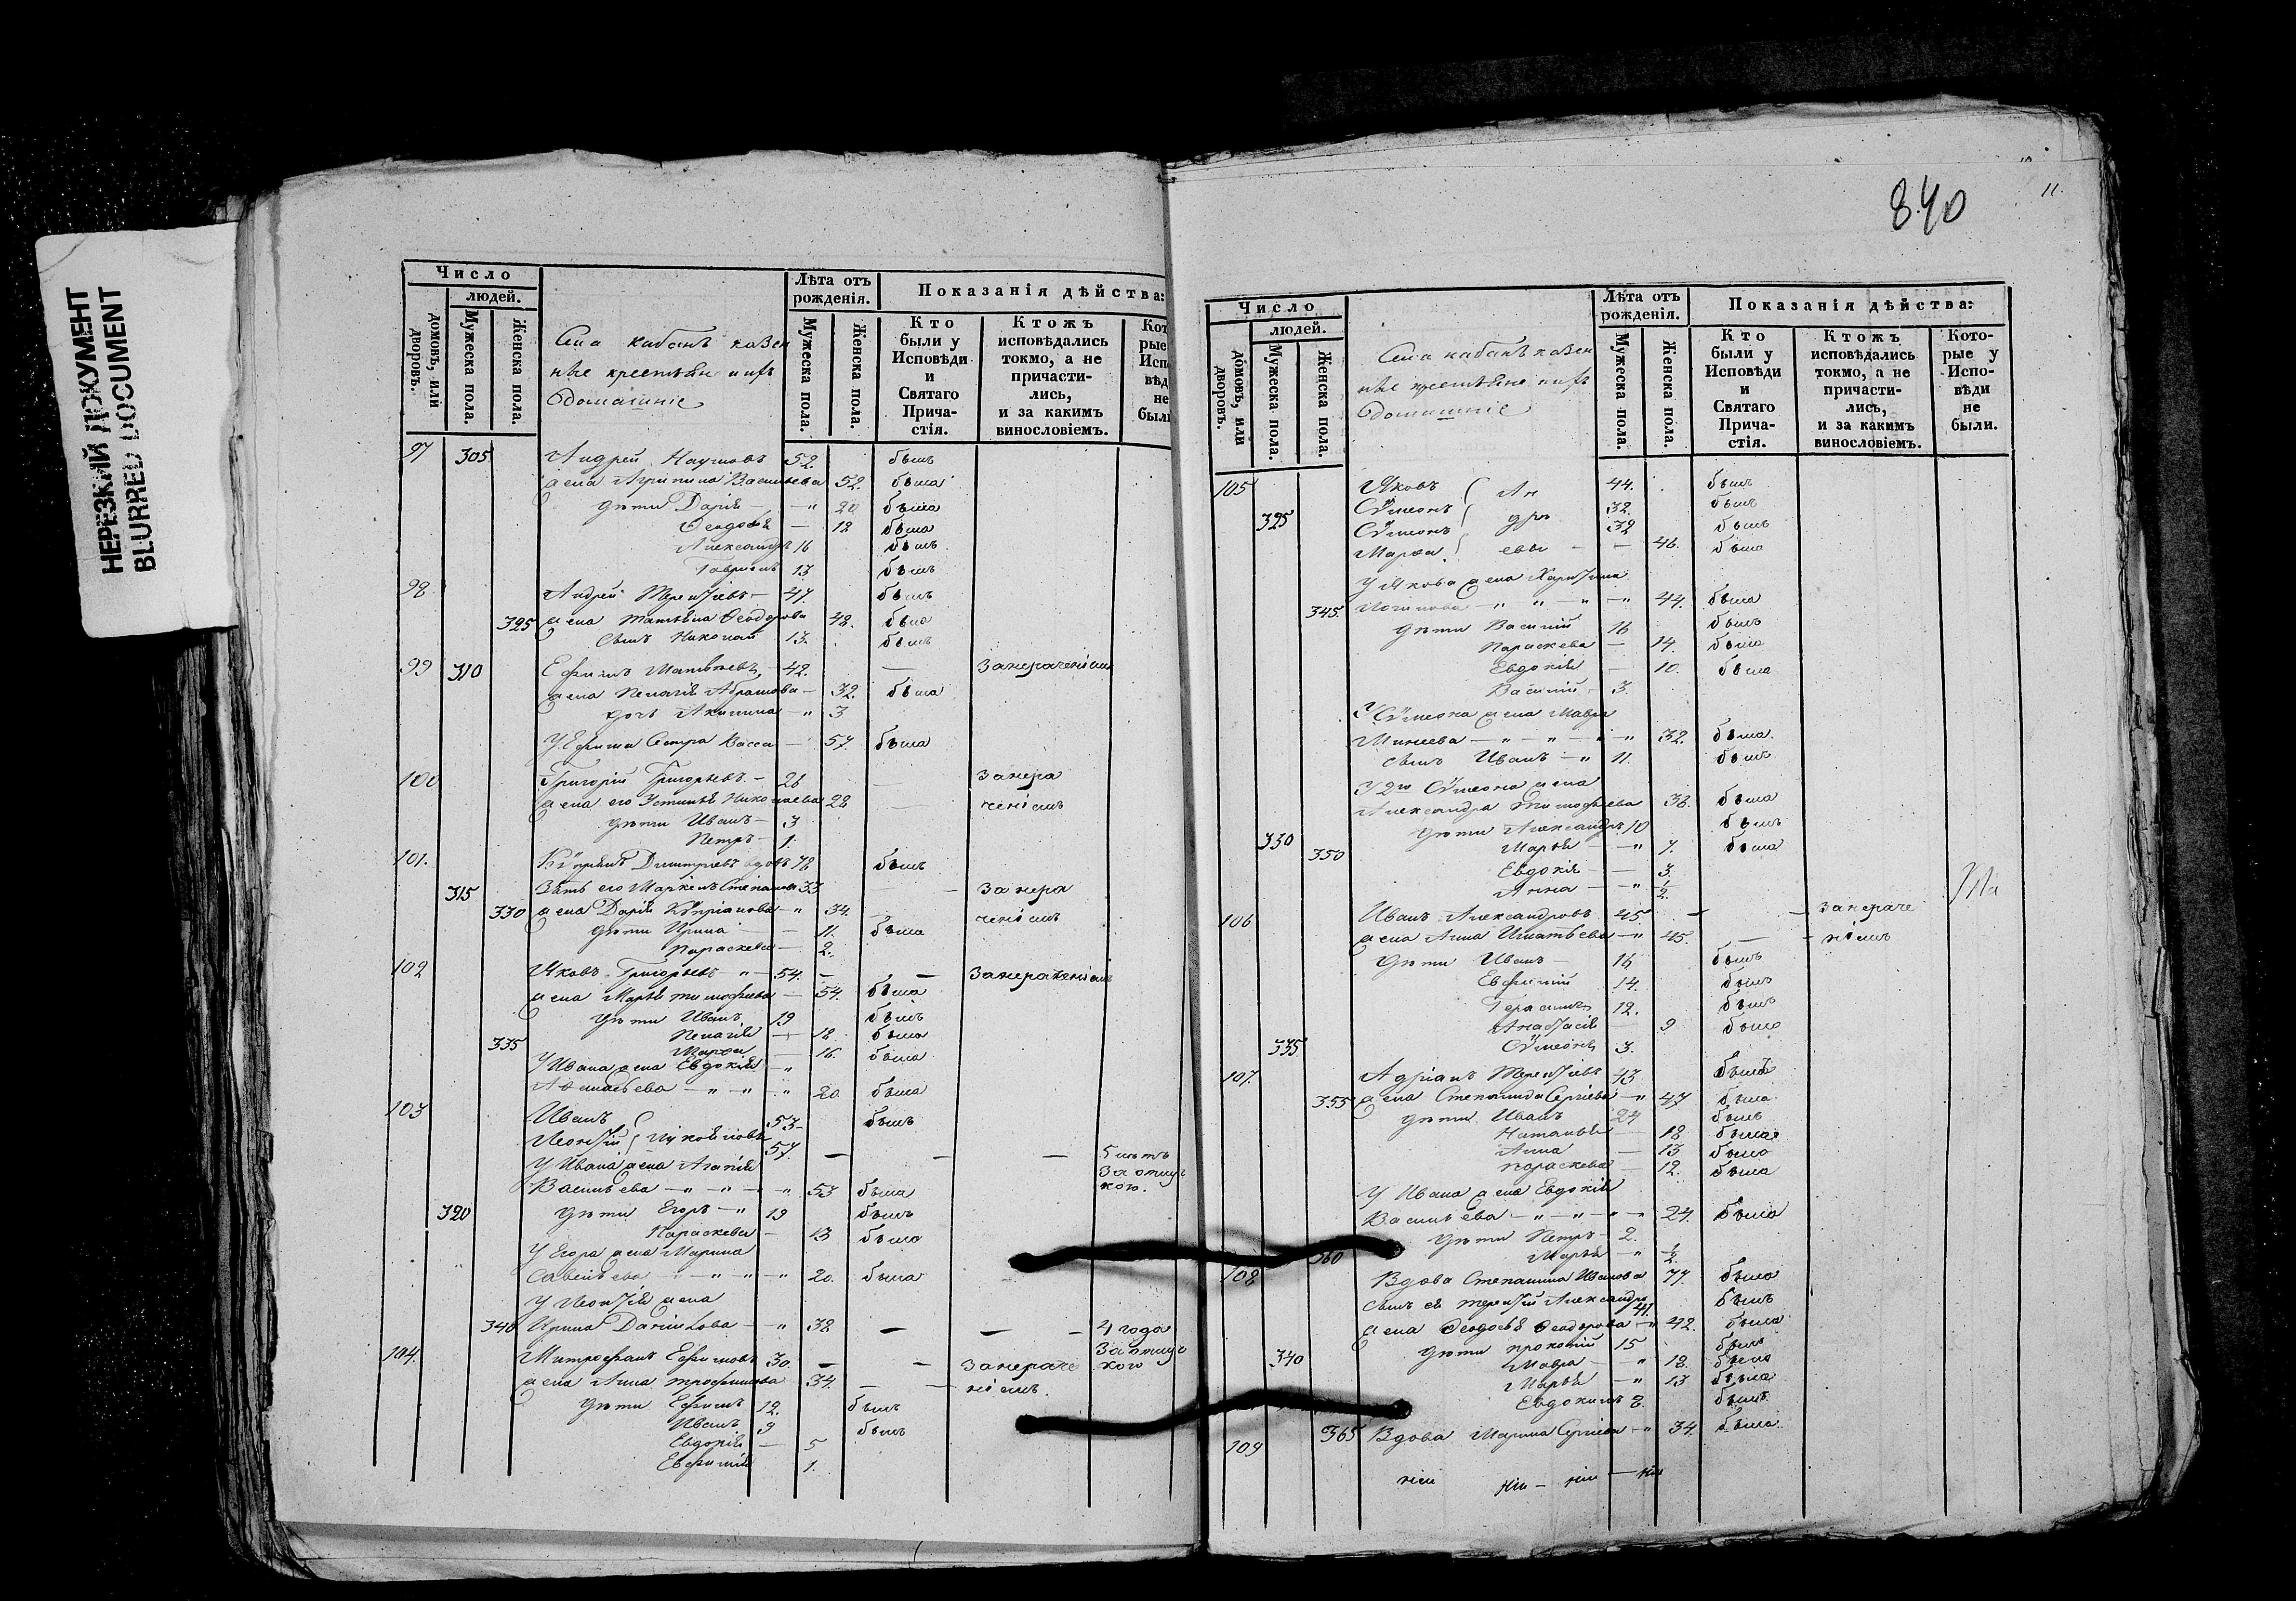 НЕРЕЗКИЙ ДОКУМЕНТ
BLURRED DOCUMENT
Число
людей.
домовъ, или дворовъ.
Мужеска пола.
Женска пола.
Села кабанъ казен
ные крестьяне и ихъ
домашние
Лѣта отъ рожденія.
Мужеска пола.
Женска пола.
Показанія дѣйства:
Кто были у Исповѣди и Святаго Прича-стія.
Ктожъ исповѣдались токмо, а не причасти-лись, и за какимъ винословіемъ.
97 305 Андрей Наумовъ 52 былъ
жена Агрипина Васильева 52. была
дѣти Дарія — " 20 была
Ѳеодосія — 18 была
Александръ 16 былъ
Гавріилъ 13 былъ
98 Андрей Терентіевъ — 47. былъ
325 жена Татьяна Ѳеодорова 48. была
сынъ Николай 13. былъ
99 310 Ефимъ Матвѣевъ 42. — за нераченіемъ
жена Пелагія Абрамова — 32. была
дочь Акилина — " 3
У Ефима сестра Васса — 57. была
100 Григорій Григорьевъ — 28 — за нера
жена его Устинія Николаева 28 — ченіемъ
дѣти Иванъ — 3
Петръ — 1.
101. Кѵпріянъ Димитріевъ вдовъ 78 былъ
315 Зять его Маркелъ Степановъ 33 — за нера
330 жена Дарія Кѵпріанова — " 34. — ченіемъ
дѣти Ирина — 11. была
Параскева — 2.
102 Яковъ Григорьевъ " — 54. — — за нераченіемъ
жена Марія Тимофеева — 54. была
дѣти Иванъ 19 былъ
Пелагія — 18. была
335 Марѳа — 16. была
У Ивана жена Евдокія — "
Аѳанасьева — " — " " 20. была
103 Иванъ 53 былъ
Леонтій Лукояновы 57. — — — 5 лѣтъ
У Ивана жена Агапія за отлуч
Васильева — " — " — " 53 была кою.
320 дѣти Егоръ — " 19 былъ
Параскева — 13 была
У Егора жена Марина
Савельева — " — " — " 20. была
У Леонтія жена
340 Ирина Данилова — " 38 — — — 4 года
за отлуч
104. Митрофанъ Ефимовъ 30. — — за нераче кою
жена Анна Трофимова 34. — — ніемъ.
дѣти Ефимъ 12. былъ
Иванъ 9 былъ
Евдокія — 5
Евфимія 1.
840
11.
Число
людей.
домовъ, или дворовъ.
Мужеска пола.
Женска пола.
Села кабанъ казен
ные крестьяне и ихъ
домашние
Лѣта отъ рожденія.
Мужеска пола.
Женска пола.
Показанія дѣйства:
Кто были у Исповѣди и Святаго Прича-стія.
Ктожъ исповѣдались токмо, а не причасти-лись, и за какимъ винословіемъ.
Кото-рые у Испо-вѣди не были.
105 Яковъ Ан 44. былъ
325 Сѵмеонъ 32. былъ
Сѵмеонъ дре 32 былъ
Марѳа евы — — 46. была
У Якова жена Харитина
345. Логинова — " " — " — " 44. была
дѣти Василій 16 былъ
Параскева — 14. была
Евдокія — 10. была
Василій — 3.
У Сѵмеона жена Мавра
Минеева — " — " — " — " 32. была.
сынъ Иванъ — " 11. былъ
У 2го Сѵмеона жена
Александра Тимофеева 38. была
330 дѣти Александръ 10 былъ
350 Марія — " 7. была
Евдокія — — 3.
Анна — " 1/2.
106 Иванъ Александровъ 45 — — за нераче
жена Анна Игнатьева — " 45. — — ніемъ
дѣти Иванъ — 16 былъ
Евфимій 14. былъ
Герасимъ 12. былъ
Анастасія — 9 была
335. Сѵмеонъ 3.
107. Адріанъ Терентіевъ 43 былъ
355 жена Степанида Сергіева — " 47 была
дѣти Иванъ 24 былъ
Наталья — 18 была
Анна — 13 была
Параскева — 12. была
У Ивана жена Евдокія
Васильева — " — " — " — " 24. была
дѣти Петръ — 2.
360 Марія — " 1/2.
108 Вдова Степанида Иванова 77. была
сынъ ея Терентій Александро 41. былъ
жена Ѳеодосья Ѳеодорова — " 42. была
дѣти Прокопій 15 былъ
340 Мавра — " 18. была
Марія — " 13 была
Евдокимъ 8. былъ
109 365 Вдова Марина Сергіева — " 34. была.